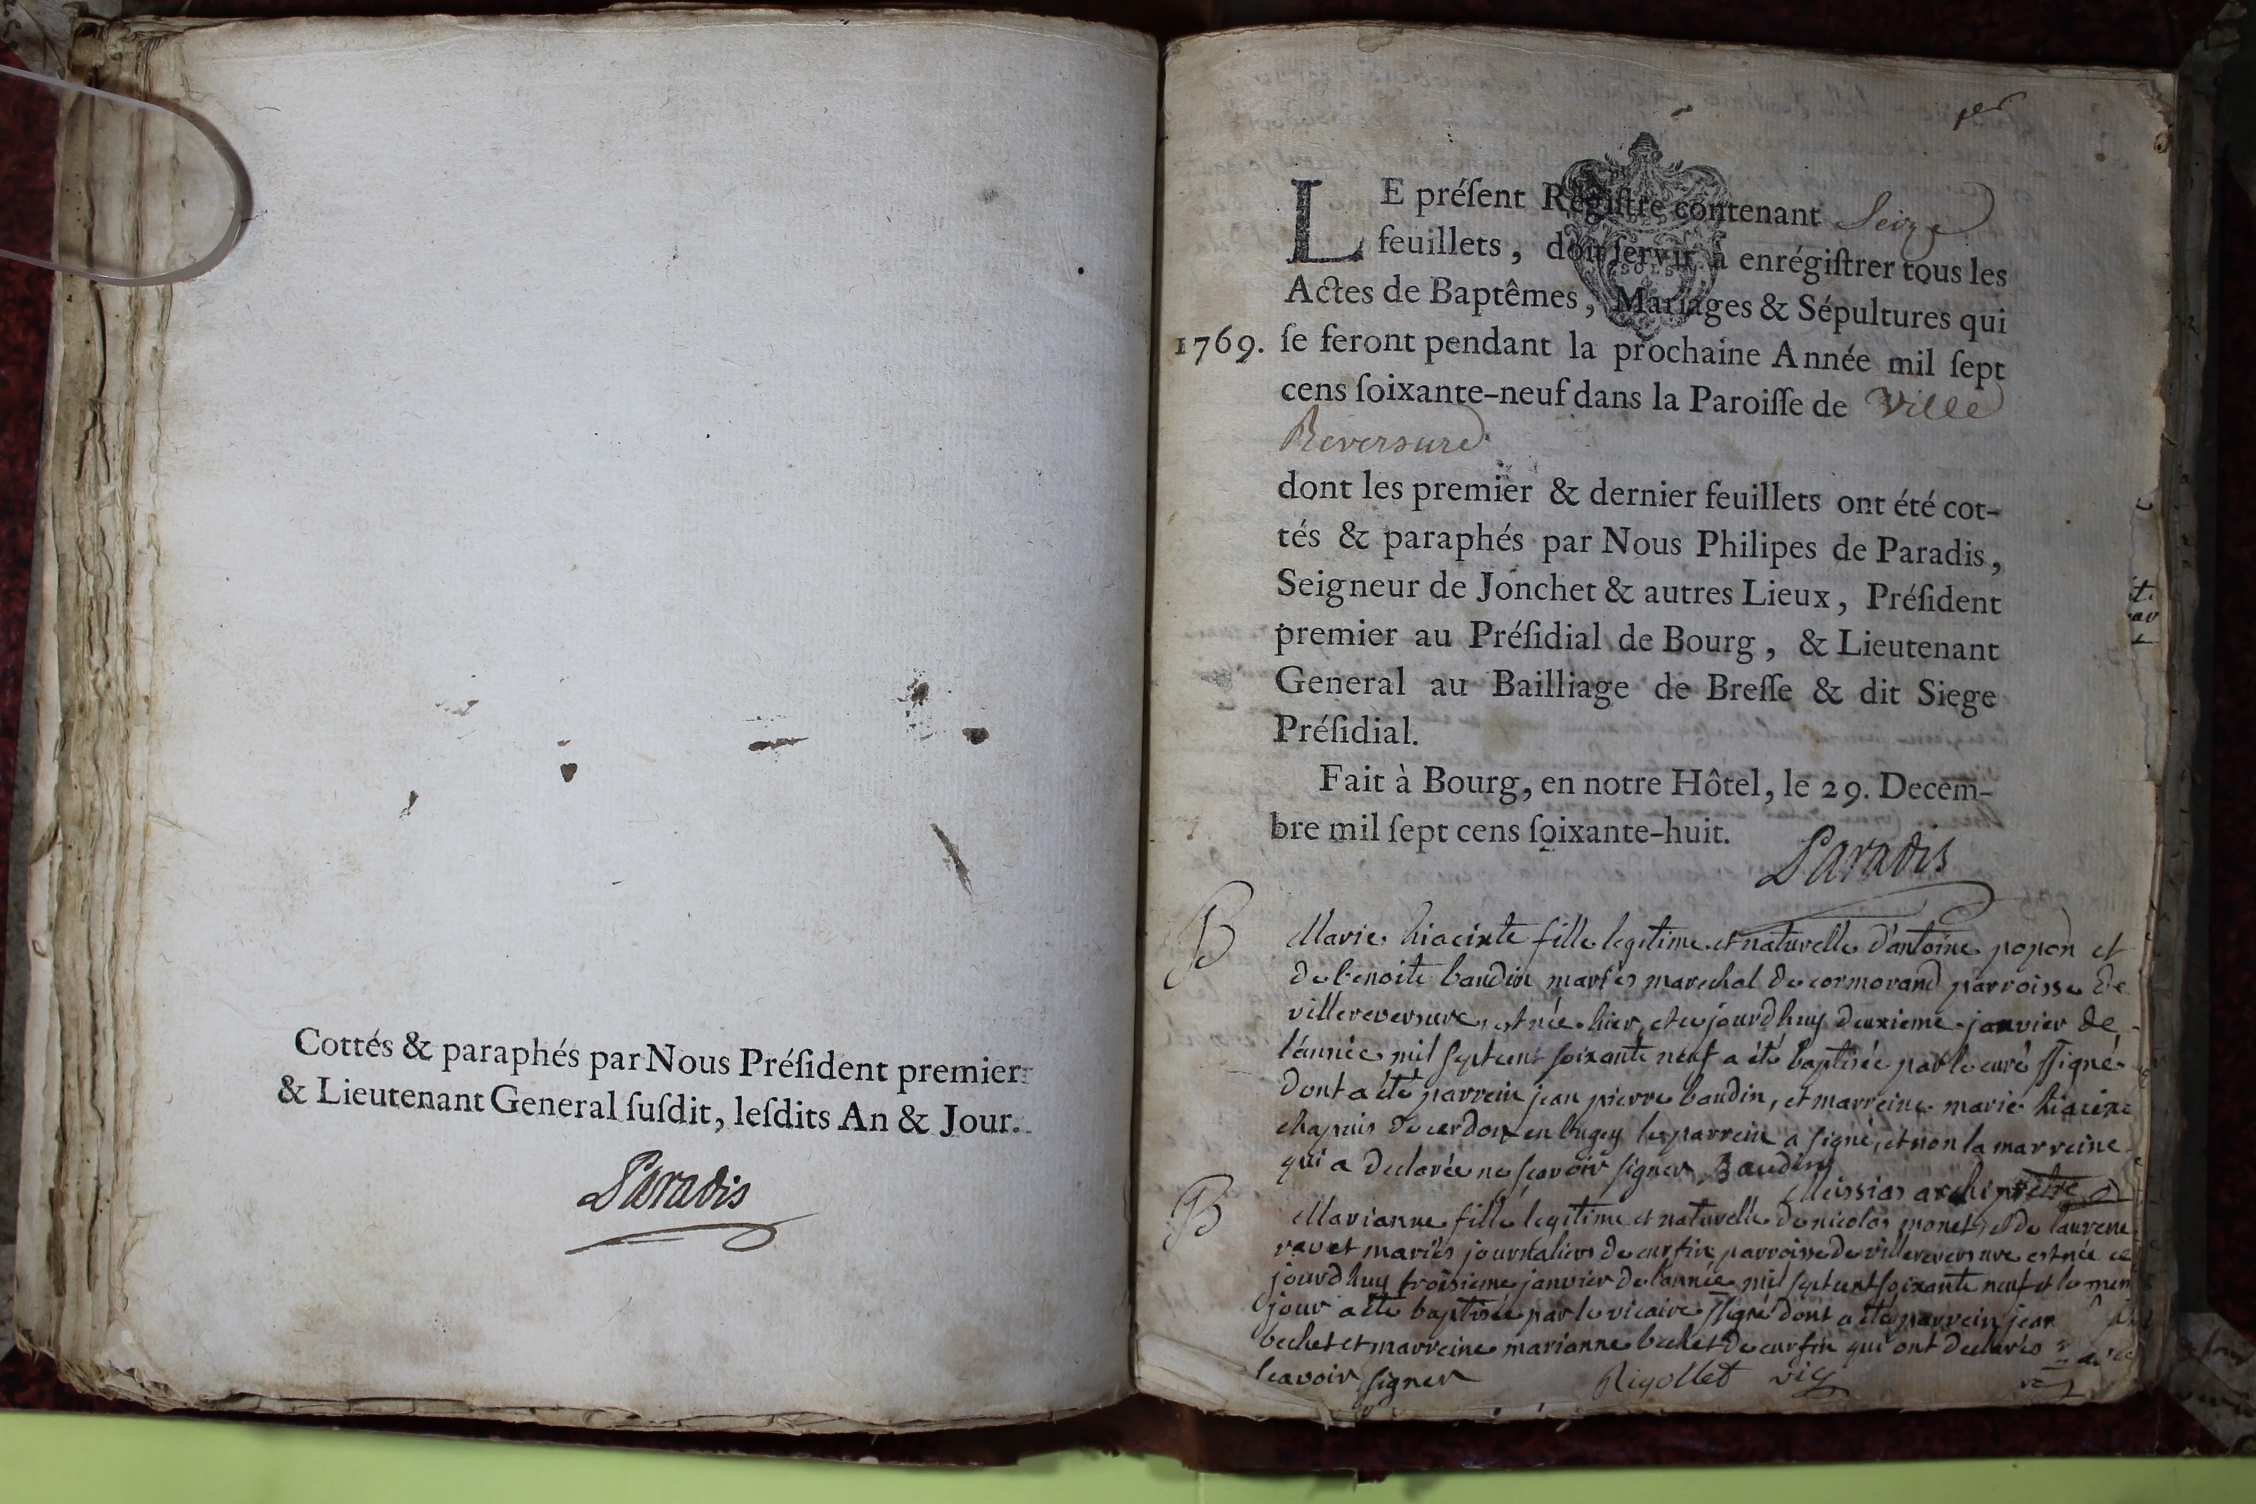 Cottés & paraphés par Nous Préſident premier
& Lieutenant General ſuſdit, leſdits An & Jour.
Paradis
per
LE préſent Régiſtre contenant Seize
feuillets, doit ſervir à enrégiſtrer tous les
Actes de Baptêmes, Mariages & Sépultures qui
1769. ſe feront pendant la prochaine Année mil ſept
cens ſoixante-neuf dans la Paroiſſe de Ville
Reversure
dont les premier & dernier feuillets ont été cot-
tés & paraphés par Nous Philipes de Paradis,
Seigneur de Jonchet & autres Lieux, Préſident
premier au Préſidial de Bourg, & Lieutenant
General au Bailliage de Breſſe & dit Siege
Préſidial.
Fait à Bourg, en notre Hôtel, le 29. Decem-
bre mil ſept cens ſoixante-huit.
Paradis
B Marie hiacinte fille legitime et naturelle d'antoine popon et
de benoite baudin mariés marechal de cormorand parroisse de
villereversure, est née hier, et ce jourd'huy deuxieme janvier de
l'année mil sept cent soixante neuf a été baptisée par le curé ssigné
dont a été parrein jean pierre baudin, et marreine marie hiacin
chapuis de cerdon en bugey le parrein a signé, et non la marreine
qui a declarée ne scavoir signer Baudin
Meissias archiprêtre
B Marianne fille legitime et naturelle de nicolas monet, et de laurence
ravet mariés journaliers de curfin parroisse de villereversure est née ce
jourd'huy troisieme janvier de l'année mil sept cent soixante neuf et le mem
jour a été baptisée par le vicaire ssigné dont a été parrein jean
bechet et marreine marianne bechet de curfin qui ont declarés
scavoir signer Rigollet vic